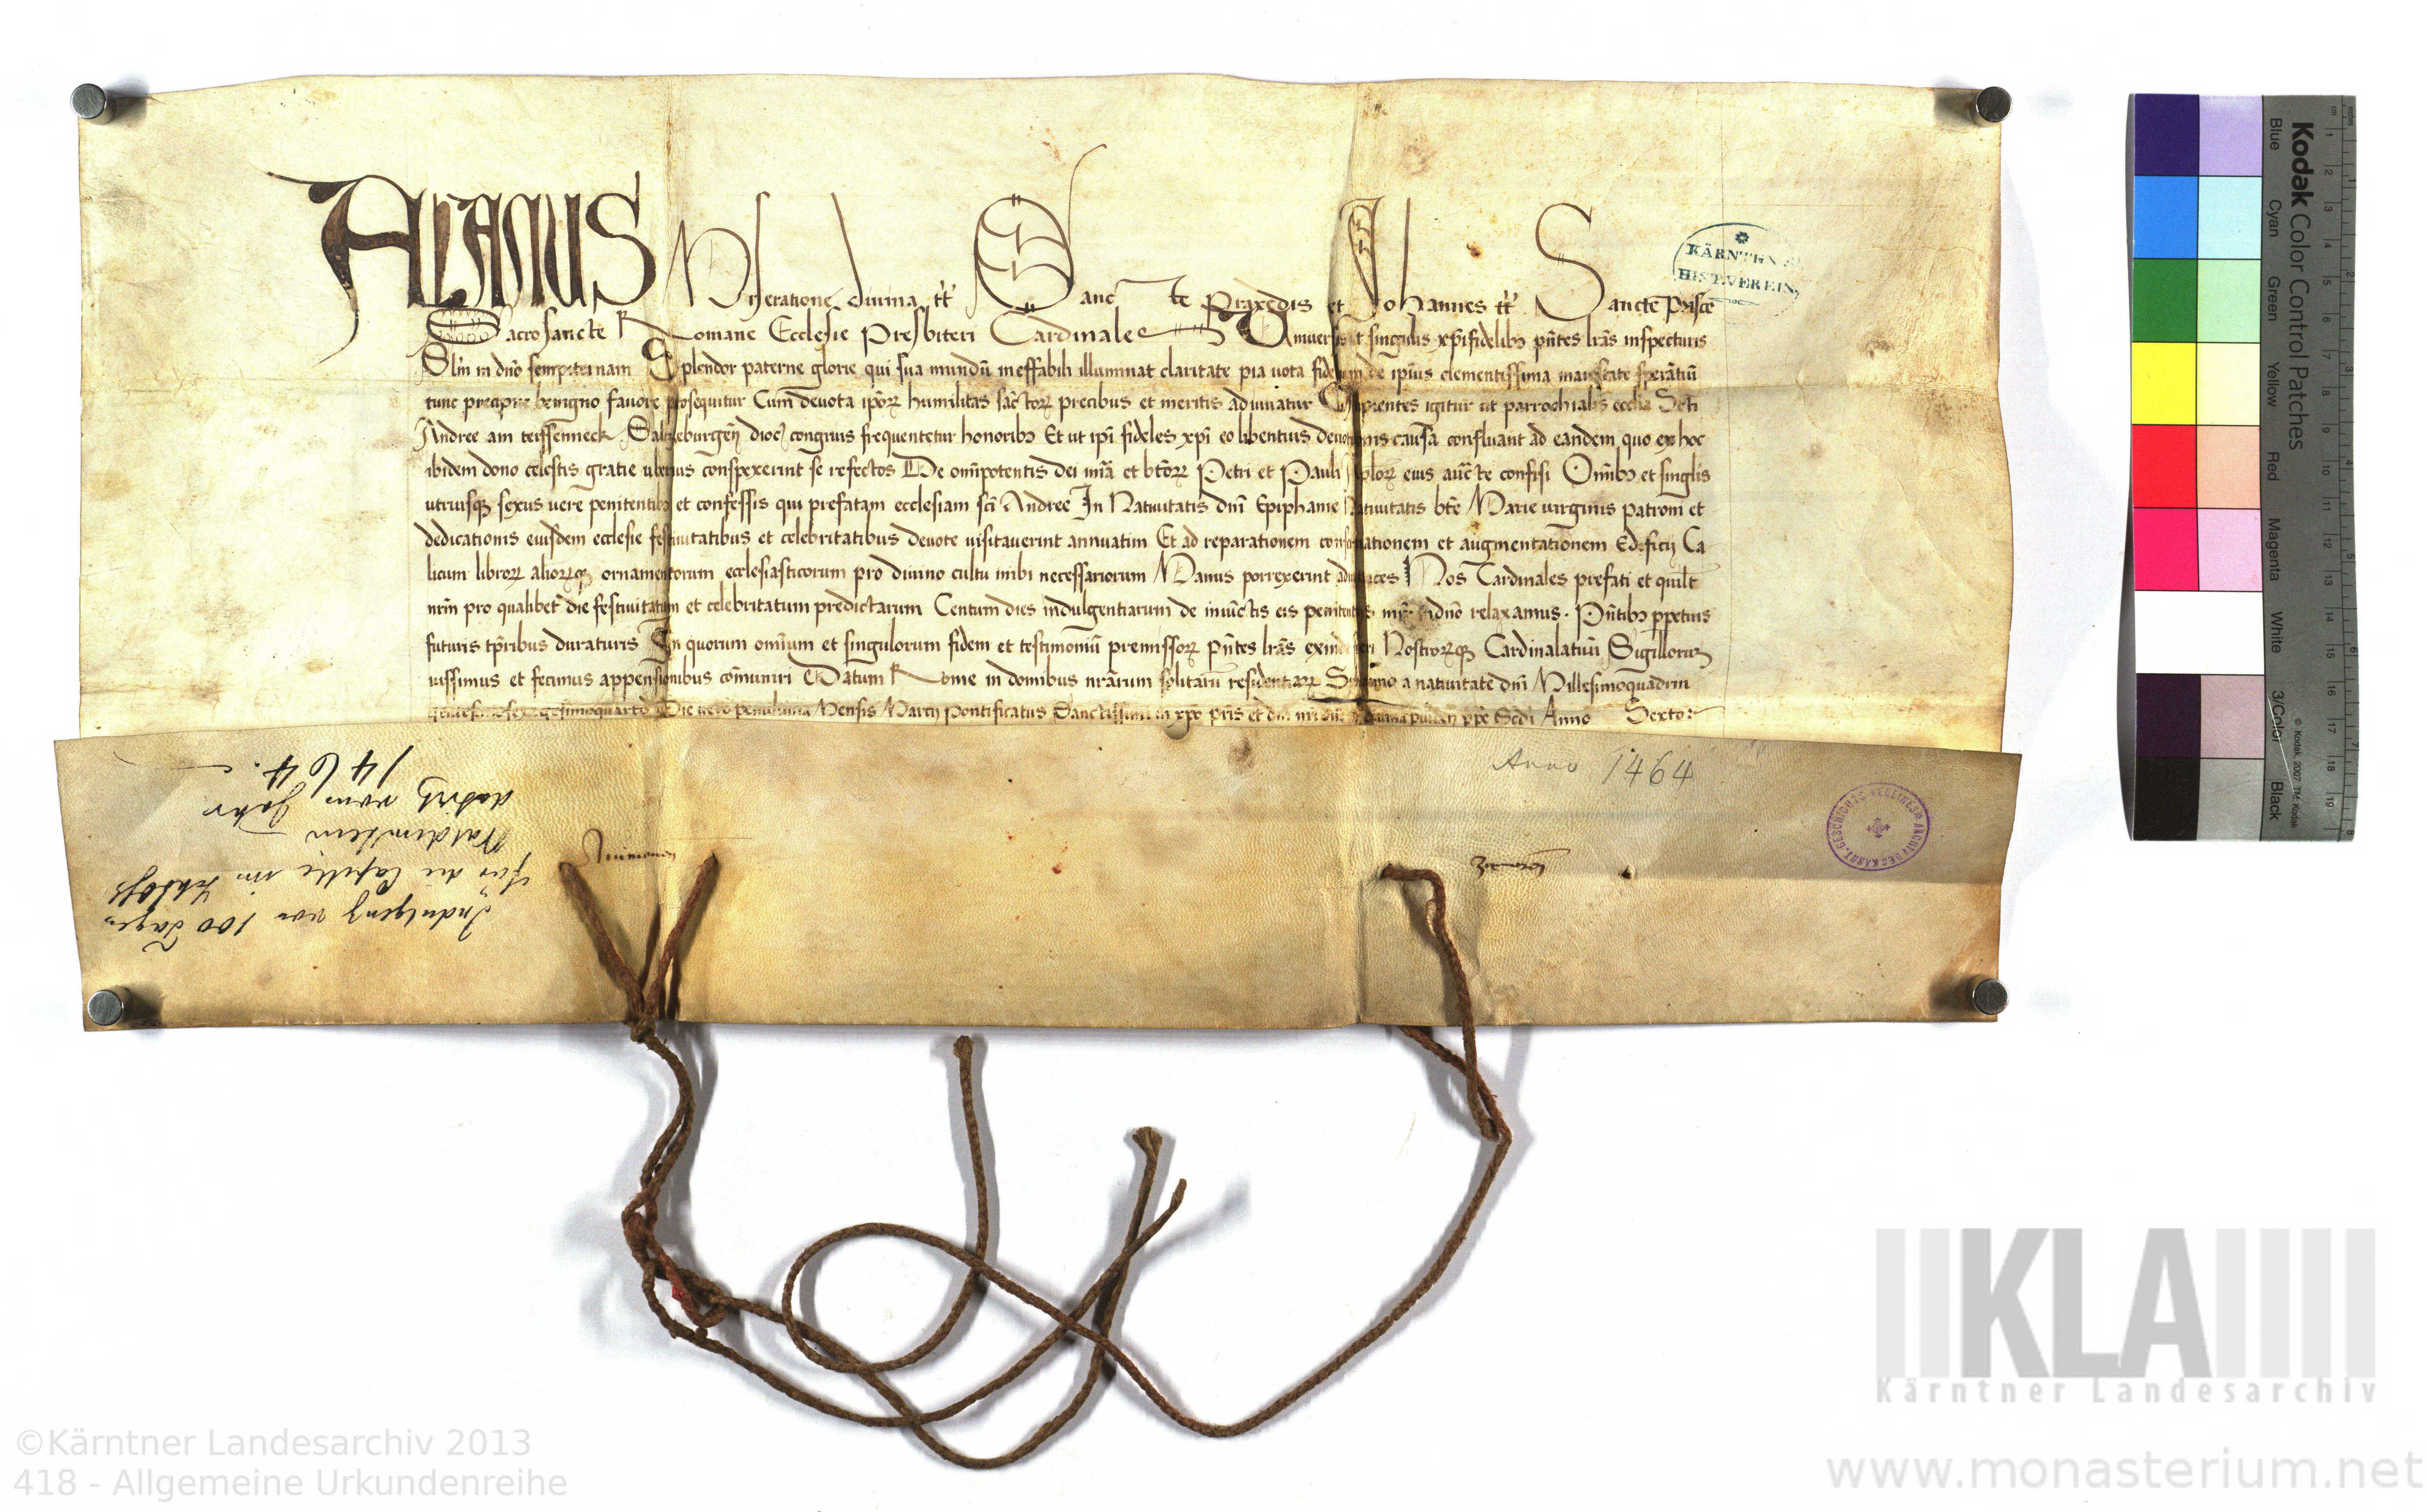 ALANUS Miseratione divina tt̄ Sancte Praxedis et Johannes tt̄ Sancte Prisce
Sacrosancte Romane Ecclesie Presbiteri Cardinales Universis et singulis xp̄ifidelibꝫ pn̄tes lr̄as inspecturis
Slm̄ in dn̄o sempiternam Splendor paterne glorie qui sua mundū ineffabili illuminat claritate pia vota fidelium de ip̄ius clementissima maiestate sperātiū
tunc precipue benigno favore prosequitur Cum devota ip̄oꝝ humilitas sāctoꝝ precibus et meritis adiuvatur Cupientes igitur ut parrochialis ecclia Scti
Andree am teissenneck Saltzeburgeñ dioc̄ congruis frequentetur honoribꝫ Et ut ip̄i fideles xp̄i eo libentius devotionis causa confluant ad eandem quo ex hoc
ibidem dono celestis gratie uberius conspexerint se refectos De om̄ipotentis dei mīa et btōꝝ Petri et Pauli aplōꝝ eius auc̄te confisi Om̄ibꝫ et singlis
utriusqꝫ sexus vere penitentibꝫ et confessis qui prefatam ecclesiam sc̄i Andree In Nativitatis dn̄i Epiphanie Nativitatis bt̄e Marie virginis patroni et
dedicationis eiusdem ecclesie festivitatibus et celebritatibus devote visitaverint annuatim Et ad reparationem conservationem et augmentationem Edificij Ca
licum libroꝝ alioꝝqꝫ ornamentorum ecclesiasticorum pro divino cultu inibi necessariorum Manus porrexerint adiutrices Nos Cardinales prefati et quilt
nrm̄ pro qualibet die festivitatum et celebritatum predictarum Centum dies indulgentiarum de iniūctis eis penitentijs mīr indn̄o relaxamus. Pn̄tibꝫ ppetuis
futuris tp̄ribus duraturis In quorum omīum et singulorum fidem et testimoniū premissoꝝ pn̄tes lr̄as exinde fieri Nostroꝝqꝫ Cardinalatuū Sigillorum
iussimus et fecimus appensionibus com̄uniri Datum Rome in domibus nr̄arum solitarū residentiaꝝ Sub anno a nativitate dn̄i Millesimoquadrin
gentesimosexagesimoquarto Die vero penultima Mensis Marcij Pontificatus Sanctissimi in xp̄o pris et dn̄i nri dn̄i Pij divina puiden̄ ppe Scdi Anno Sexto:
KÄRNTNR
HIST.VEREIN
Anno 1464
GESCHICHTS-VEREINES ARCHIV DES KÄRNT.
Indulgenz von 100 Tagen
für die Capelle im Schloß
Waldenstein
datirt vom Jahr
1464.
Kodak Color Control Patches
Blue Cyan Green Yellow Red Magenta White 3/Color Black
© Kodak, 2007 TM: Kodak
KLA
Kärntner Landesarchiv
©Kärntner Landesarchiv 2013
418 - Allgemeine Urkundenreihe
www.monasterium.net